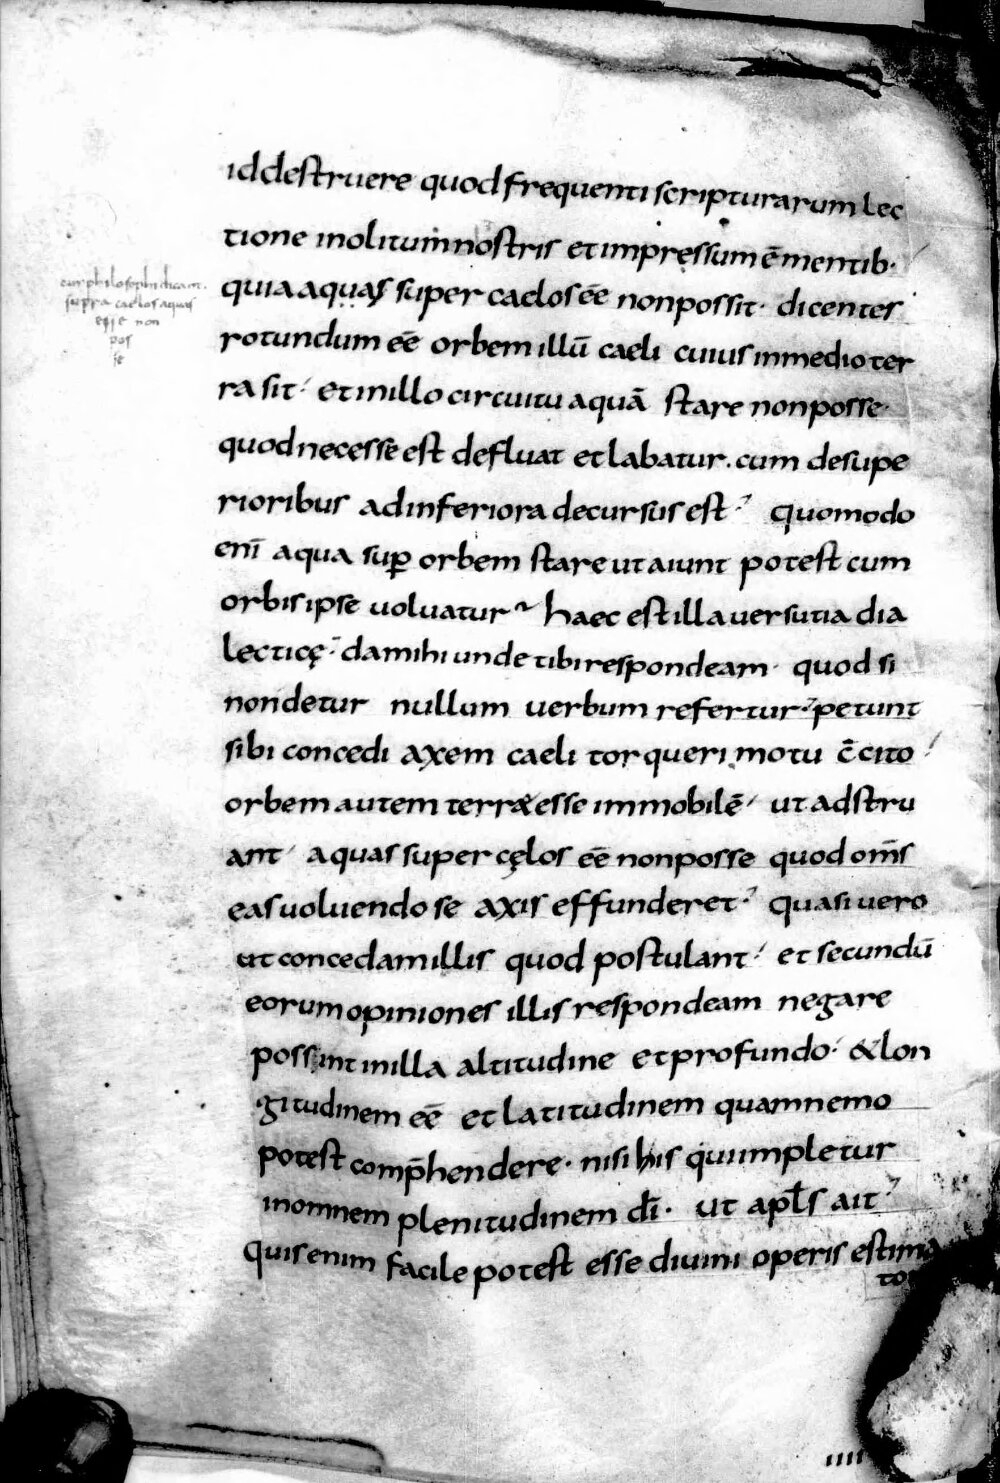 id destruere quod frequenti scripturarum lec
tione inolitum nostris et impressum ē mentib·
cur philosophi dicant
supra caelos aquas
esse non
pos
se
quia aquas super caelos ēe non possit· dicentes
rotundum ēe orbem illū caeli cuius in medio ter
ra sit· et in illo circuitu aquā stare non posse·
quod necesse est defluat et labatur. cum de supe
rioribus ad inferiora decursus est· quomodo
enī aqua suꝑ orbem stare ut aiunt potest cum
orbis ipse uoluatur haec est illa uersutia dia
lecticę· da mihi unde tibi respondeam· quod si
non detur nullum uerbum refertur· petunt
sibi concedi axem caeli torqueri motu c̄cito
orbem autem terrae esse immobilē· ut adstru
ant· aquas super cęlos ēe non posse quod om̄s
eas uoluendo se axis effunderet· quasi uero
ut concedam illis quod postulant· et secundū
eorum opiniones illis respondeam negare
possint in illa altitudine et profundo· & lon
gitudinem ēe et latitudinem quam nemo
potest comp̄hendere· nisi his qui impletur
in omnem plenitudinem dī· ut apłs ait
Quis enim facile potest esse diuini operis estima
to
IIII